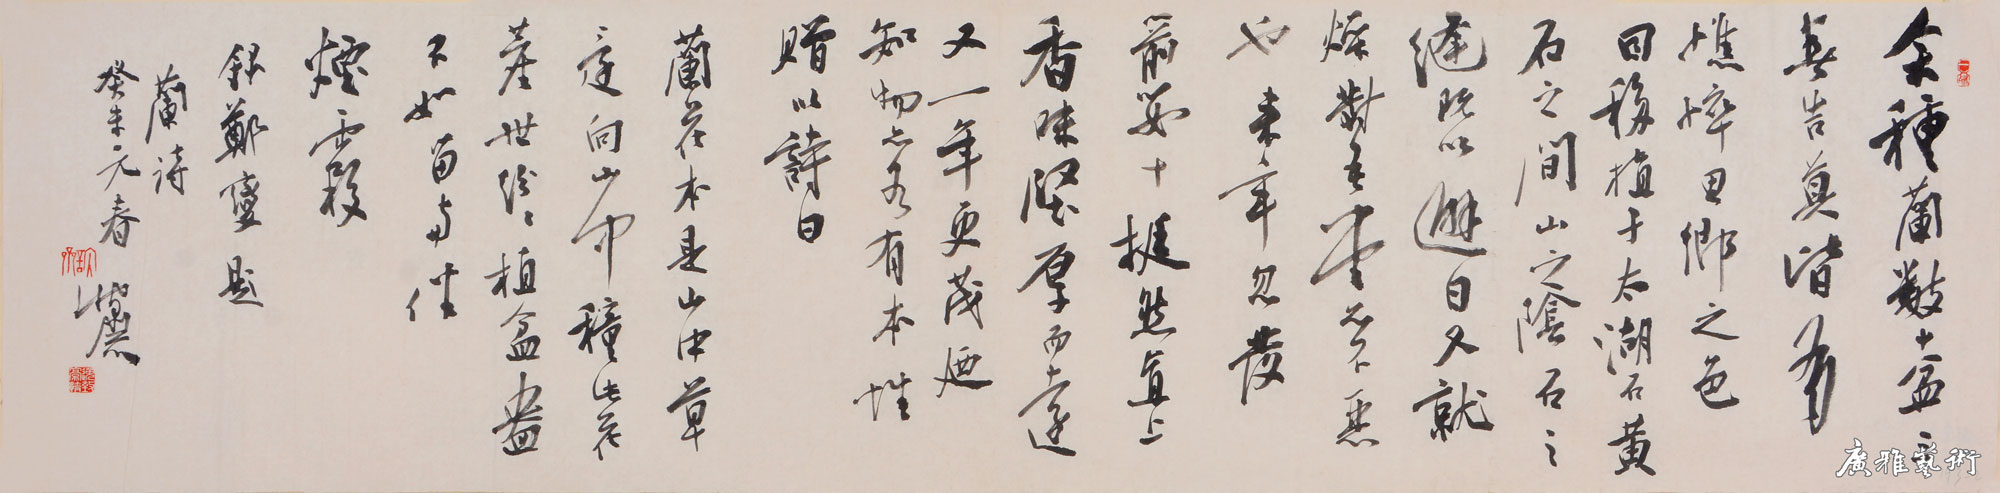 余種蘭數十盆三
春告莫皆有
憔悴思鄉之色
因移植于太湖石黃
石之間山之陰石之
縫既以避日又就
燥對吾堂亦不惡
也來年忽發
箭數十挺然直上
香味堅厚而遠
又一年更茂廼
知物亦各有本性
贈以詩曰
蘭花本是山中草
還向山中種此花
塵世紛紛植盆盎
不如留與伴
煙霞
錄鄭燮題
蘭詩
癸未元春
廣雅藝術